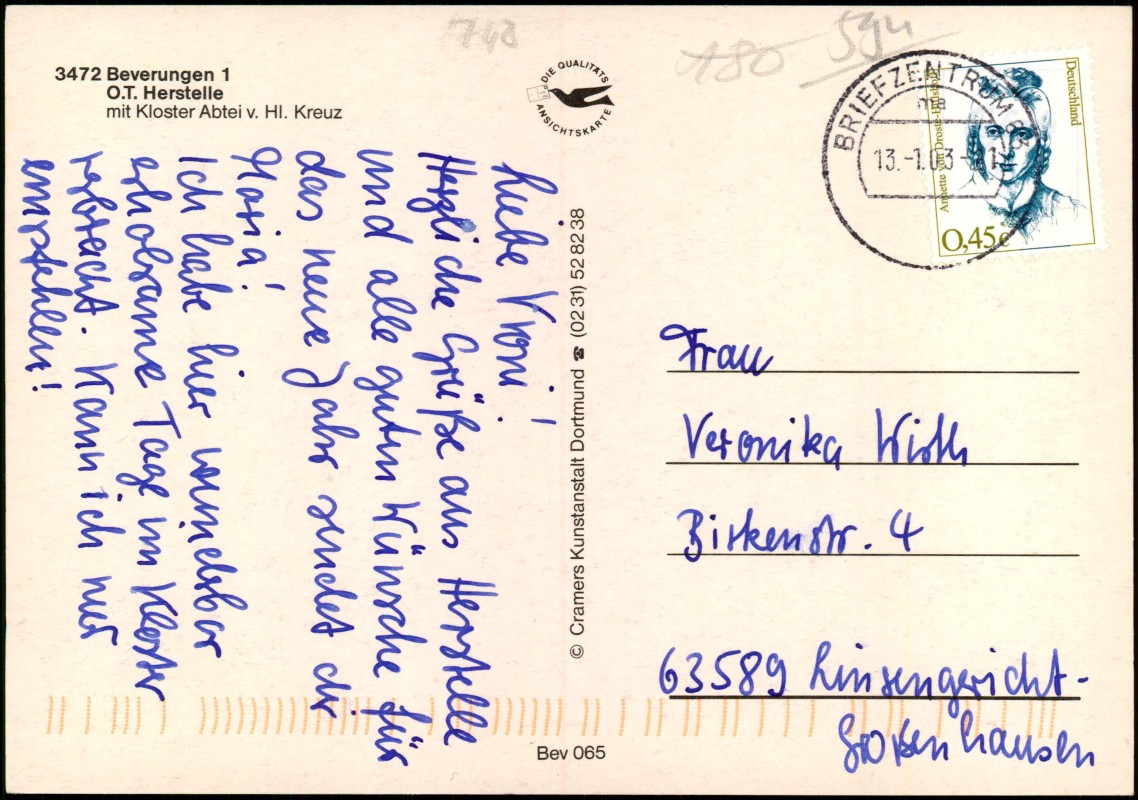 3472 Beverungen 1
O.T. Herstelle
mit Kloster Abtei v. Hl. Kreuz
DIE QUALITÄTS
ANSICHTSKARTE
Liebe Vroni!
Herzliche Grüße aus Herstelle
und alle guten Wünsche für
das neue Jahr sendet dir
Maria!
Ich habe hier wunderbar
erholsame Tage im Kloster
verbracht. Kann ich nur
empfehlen!
© Cramers Kunstanstalt Dortmund ☎ (02 31) 52 82 38
Bev 065
740
180
594
BRIEFZENTRUM 63
ma
13.-1.03-21
Deutschland
Annette von Droste-Hülshoff
0,45€
Frau
Veronika Wirth
Birkenstr. 4
63589 Linsengericht-
Großenhausen